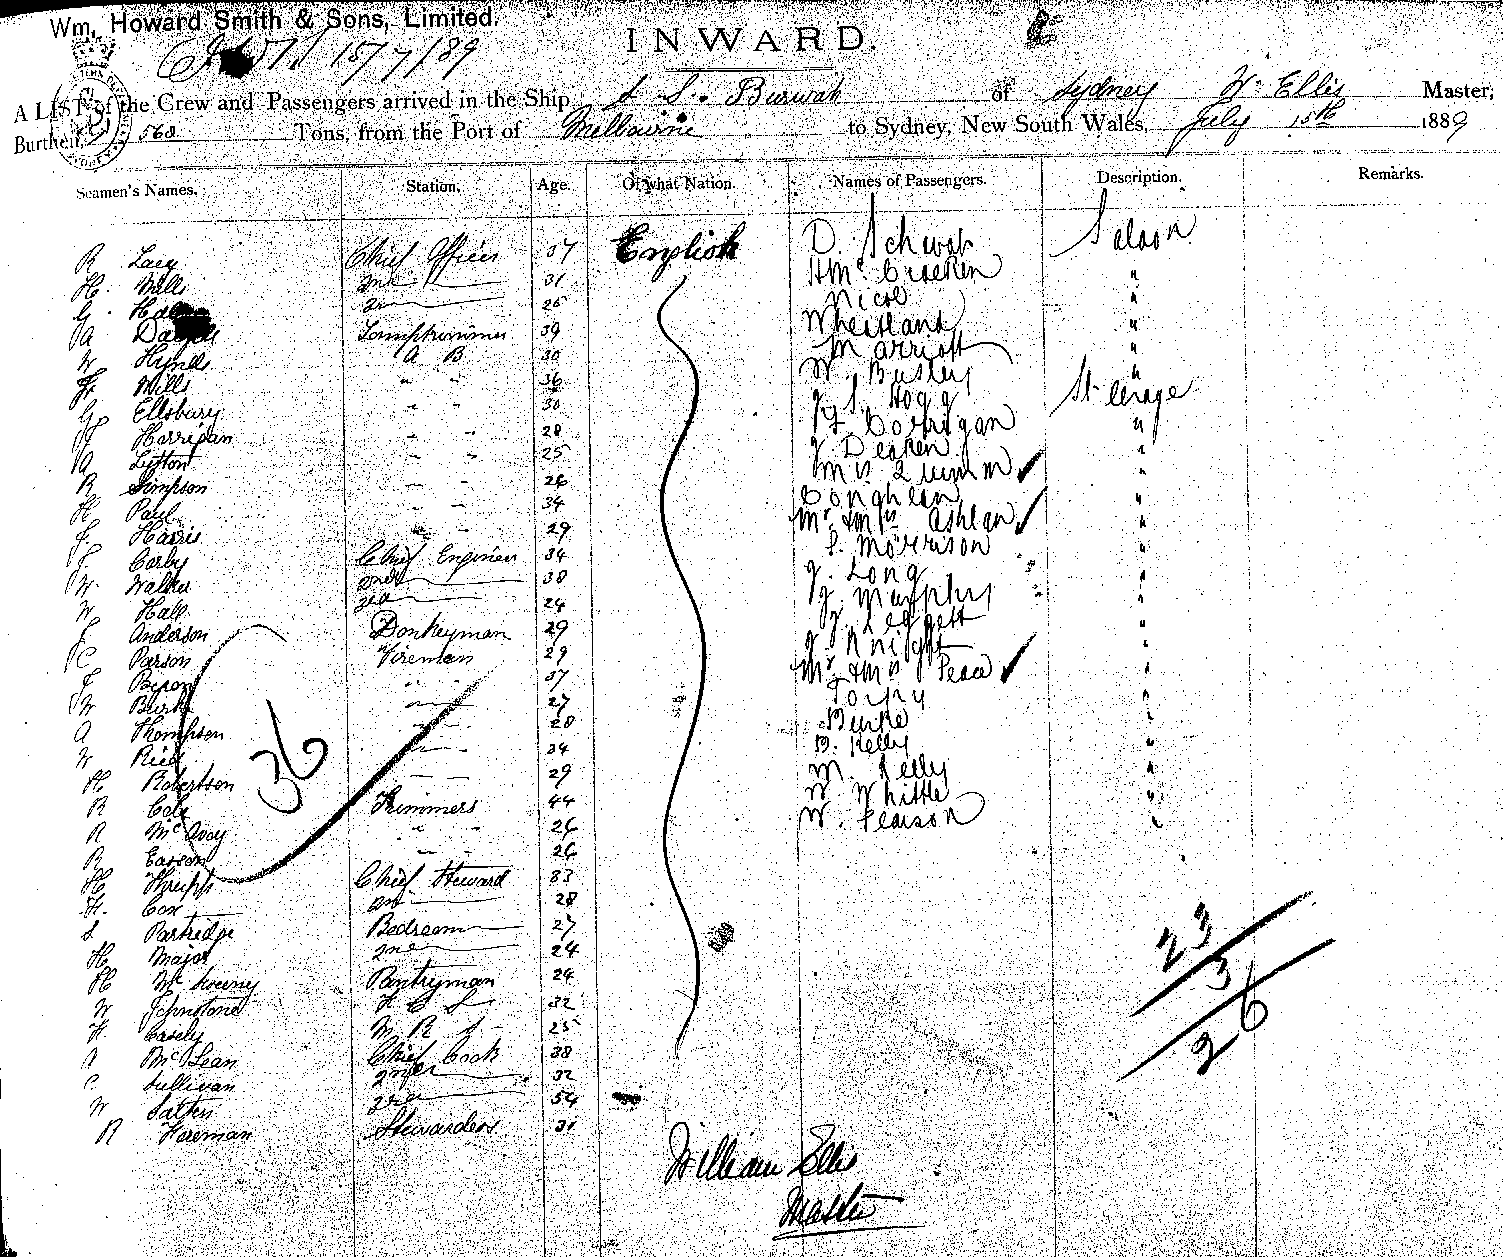 Wm. Howard Smith & Sons, Limited.
15/7/89
INWARD.
A LIST of the Crew and Passengers arrived in the Ship S. S. Burwah of Sydney W. Ellis Master,
Burthen, 568 Tons, from the Port of Melbourne to Sydney, New South Wales, July 15th 1889
Seamen's Names. Station. Age. Of what Nation. Names of Passengers. Description. Remarks.
R Lacy Chief Officer 37 English D. Schwab Saloon
H. Wills 2nd 31 H Mc Cracken "
G. 25 Nicol "
A Lamptrimmer 39 Wheatland "
W Hynds A B 30 Marriott "
Fr Wills " " 36 W. Busley "
G Ellsbury " " 30 J. S. Hogg Steerage
J Harrigan " " 28 F. Corrigan "
A Lytton " " 25 J Deaken "
R Simpson " " 26 Mrs Quinn "
H Paul " " 34 Coughlan "
J. Harris " " 29 Mr & Mrs Ashlan "
J. Carby Chief Engineer 34 S. Morrison "
W. Walker 2nd 38 J. Long "
W Hall 3rd 24 J. Murphy "
J. Anderson Donkeyman 29 J. Leggett "
C Parson Fireman 29 J. Knight "
J. Byron " " 37 Mr & Mrs Peace "
W Burke " " 27 Torpy "
A Thompson " " 28 Burke "
W Ried " " 34 B. Kelly "
H Robertson " " 29 M. Kelly "
R Cole Trimmers 44 W Whittle "
R McAvoy " " 26 W. Pearson "
R Easson " " 26
H Thripp Chief Steward 33
H. Cox 2nd 28
S Partridge Bedroom 27
H Major 2nd 24
H McSweeny Pantryman 24
W Johnstone F C S 32
H Casely M R S 25
A McLean Chief Cook 38
C Sullivan 2nd 32
W 3rd 54
R Foreman Stewardess 31
36
23
3
26
William Ellis
Master